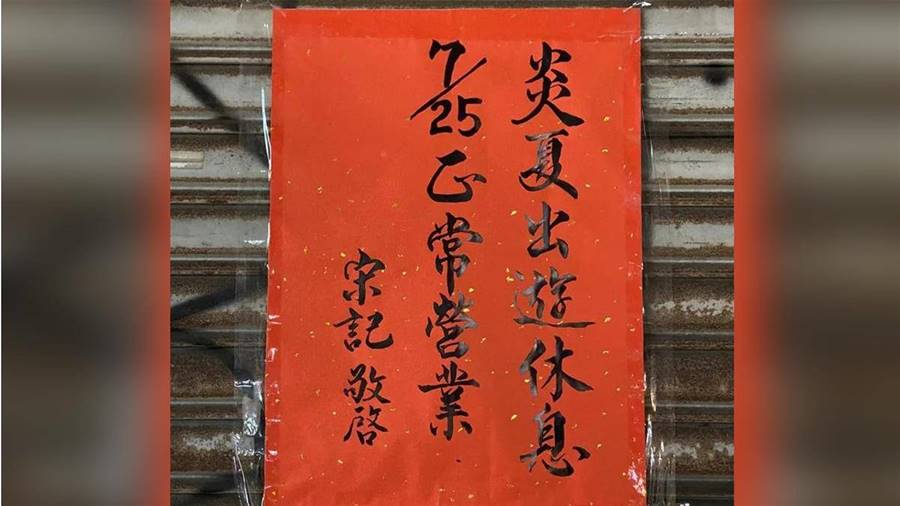 炎夏出遊休息
7/25正常營業
宋記敬啓